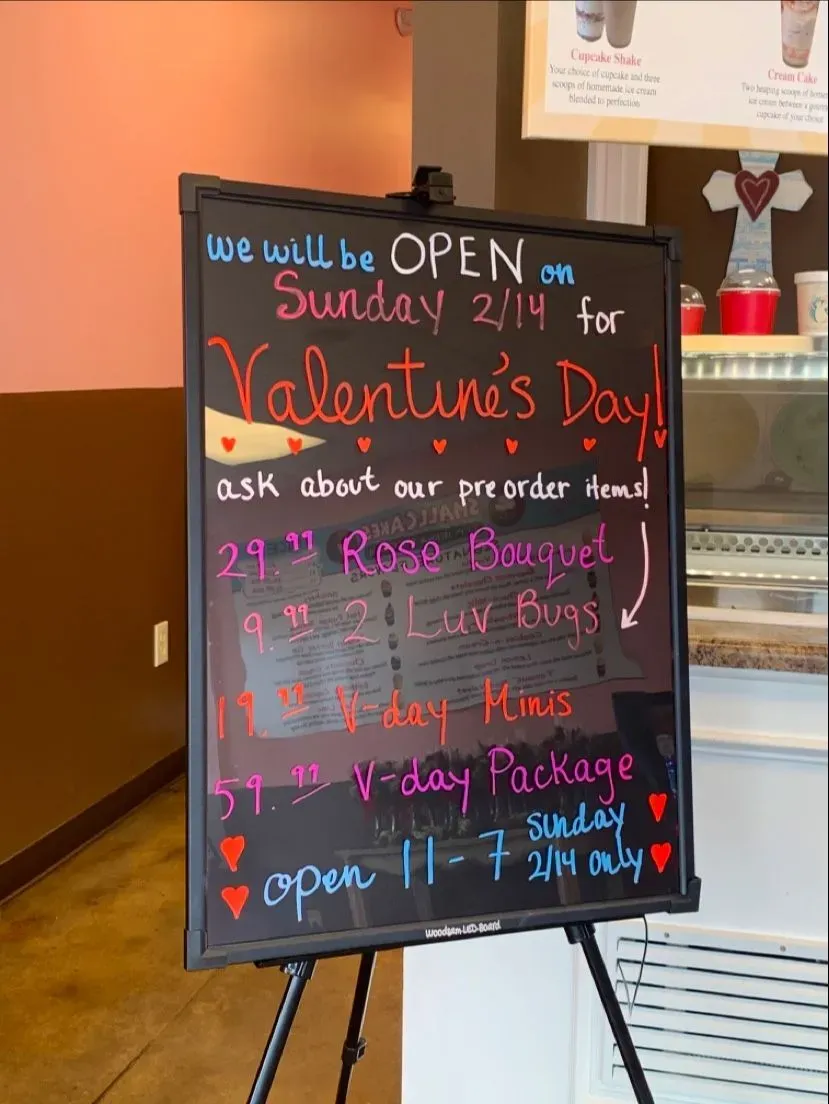 Cupcake Shake
Your choice of cupcake and three
scoops of homemade ice cream
blended to perfection
Cream Cake
Two heaping scoops of
ice cream between a
cupcake of your
we will be OPEN on
Sunday 2/14 for
Valentine's Day!
ask about our preorder items!
29.99 Rose Bouquet
9.99 2 Luv Bugs
19.99 V-day Minis
59.99 V-day Package
open 11-7 Sunday
2/14 only
Woodsam LED Board
SMALLCAKES